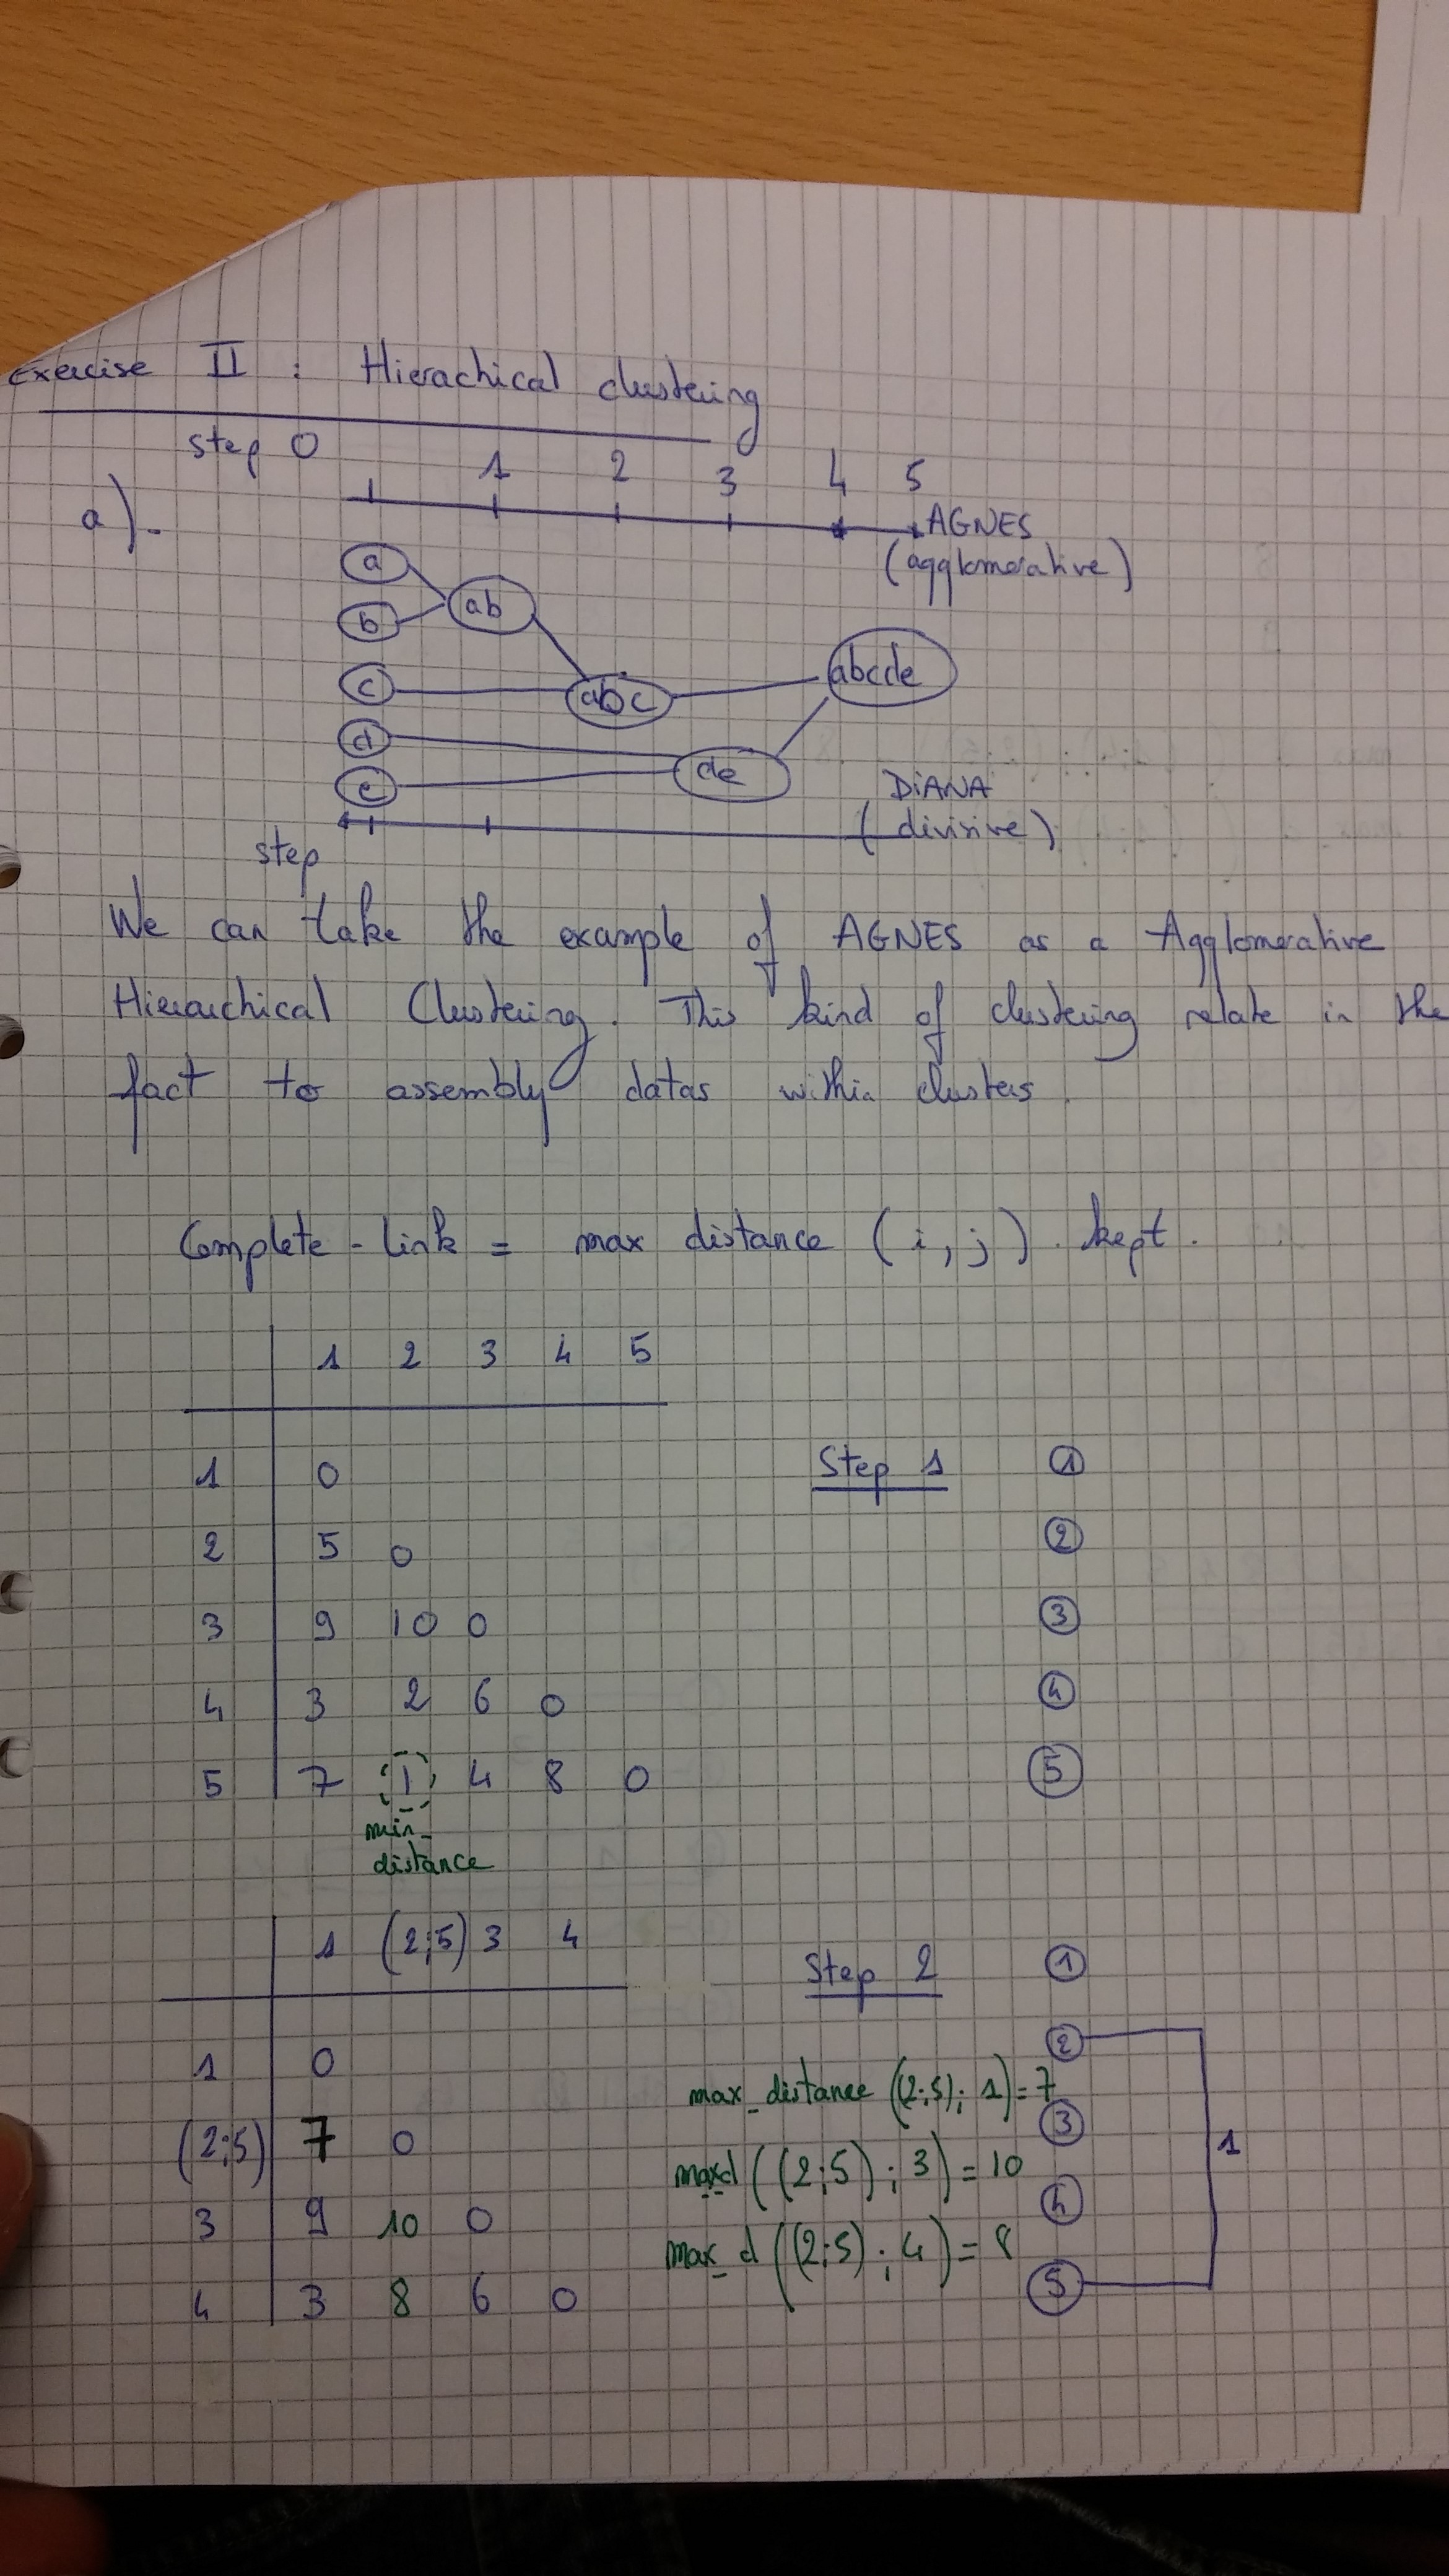 Exercise II : Hierachical clustering
step 0 1 2 3 4 5
a).
AGNES
(agglomerative)
a
b
ab
c
abc
abcde
d
e
de
DiANA
(divisive)
step
We can take the example of AGNES as a Agglomerative
Hierarchical Clustering. This kind of clustering relate in the
fact to assembly datas within clusters.
Complete-link = max distance (i, j) kept.
1 2 3 4 5
1 0
2 5 0
3 9 10 0
4 3 2 6 0
5 7 1 4 8 0
min_
distance
Step 1
1
2
3
4
5
1 (2;5) 3 4
1 0
(2;5) 7 0
3 9 10 0
4 3 8 6 0
Step 2
max_distance ((2;5); 1) = 7
maxd ((2;5); 3) = 10
max_d ((2;5); 4) = 8
1
2
3
4
5
1